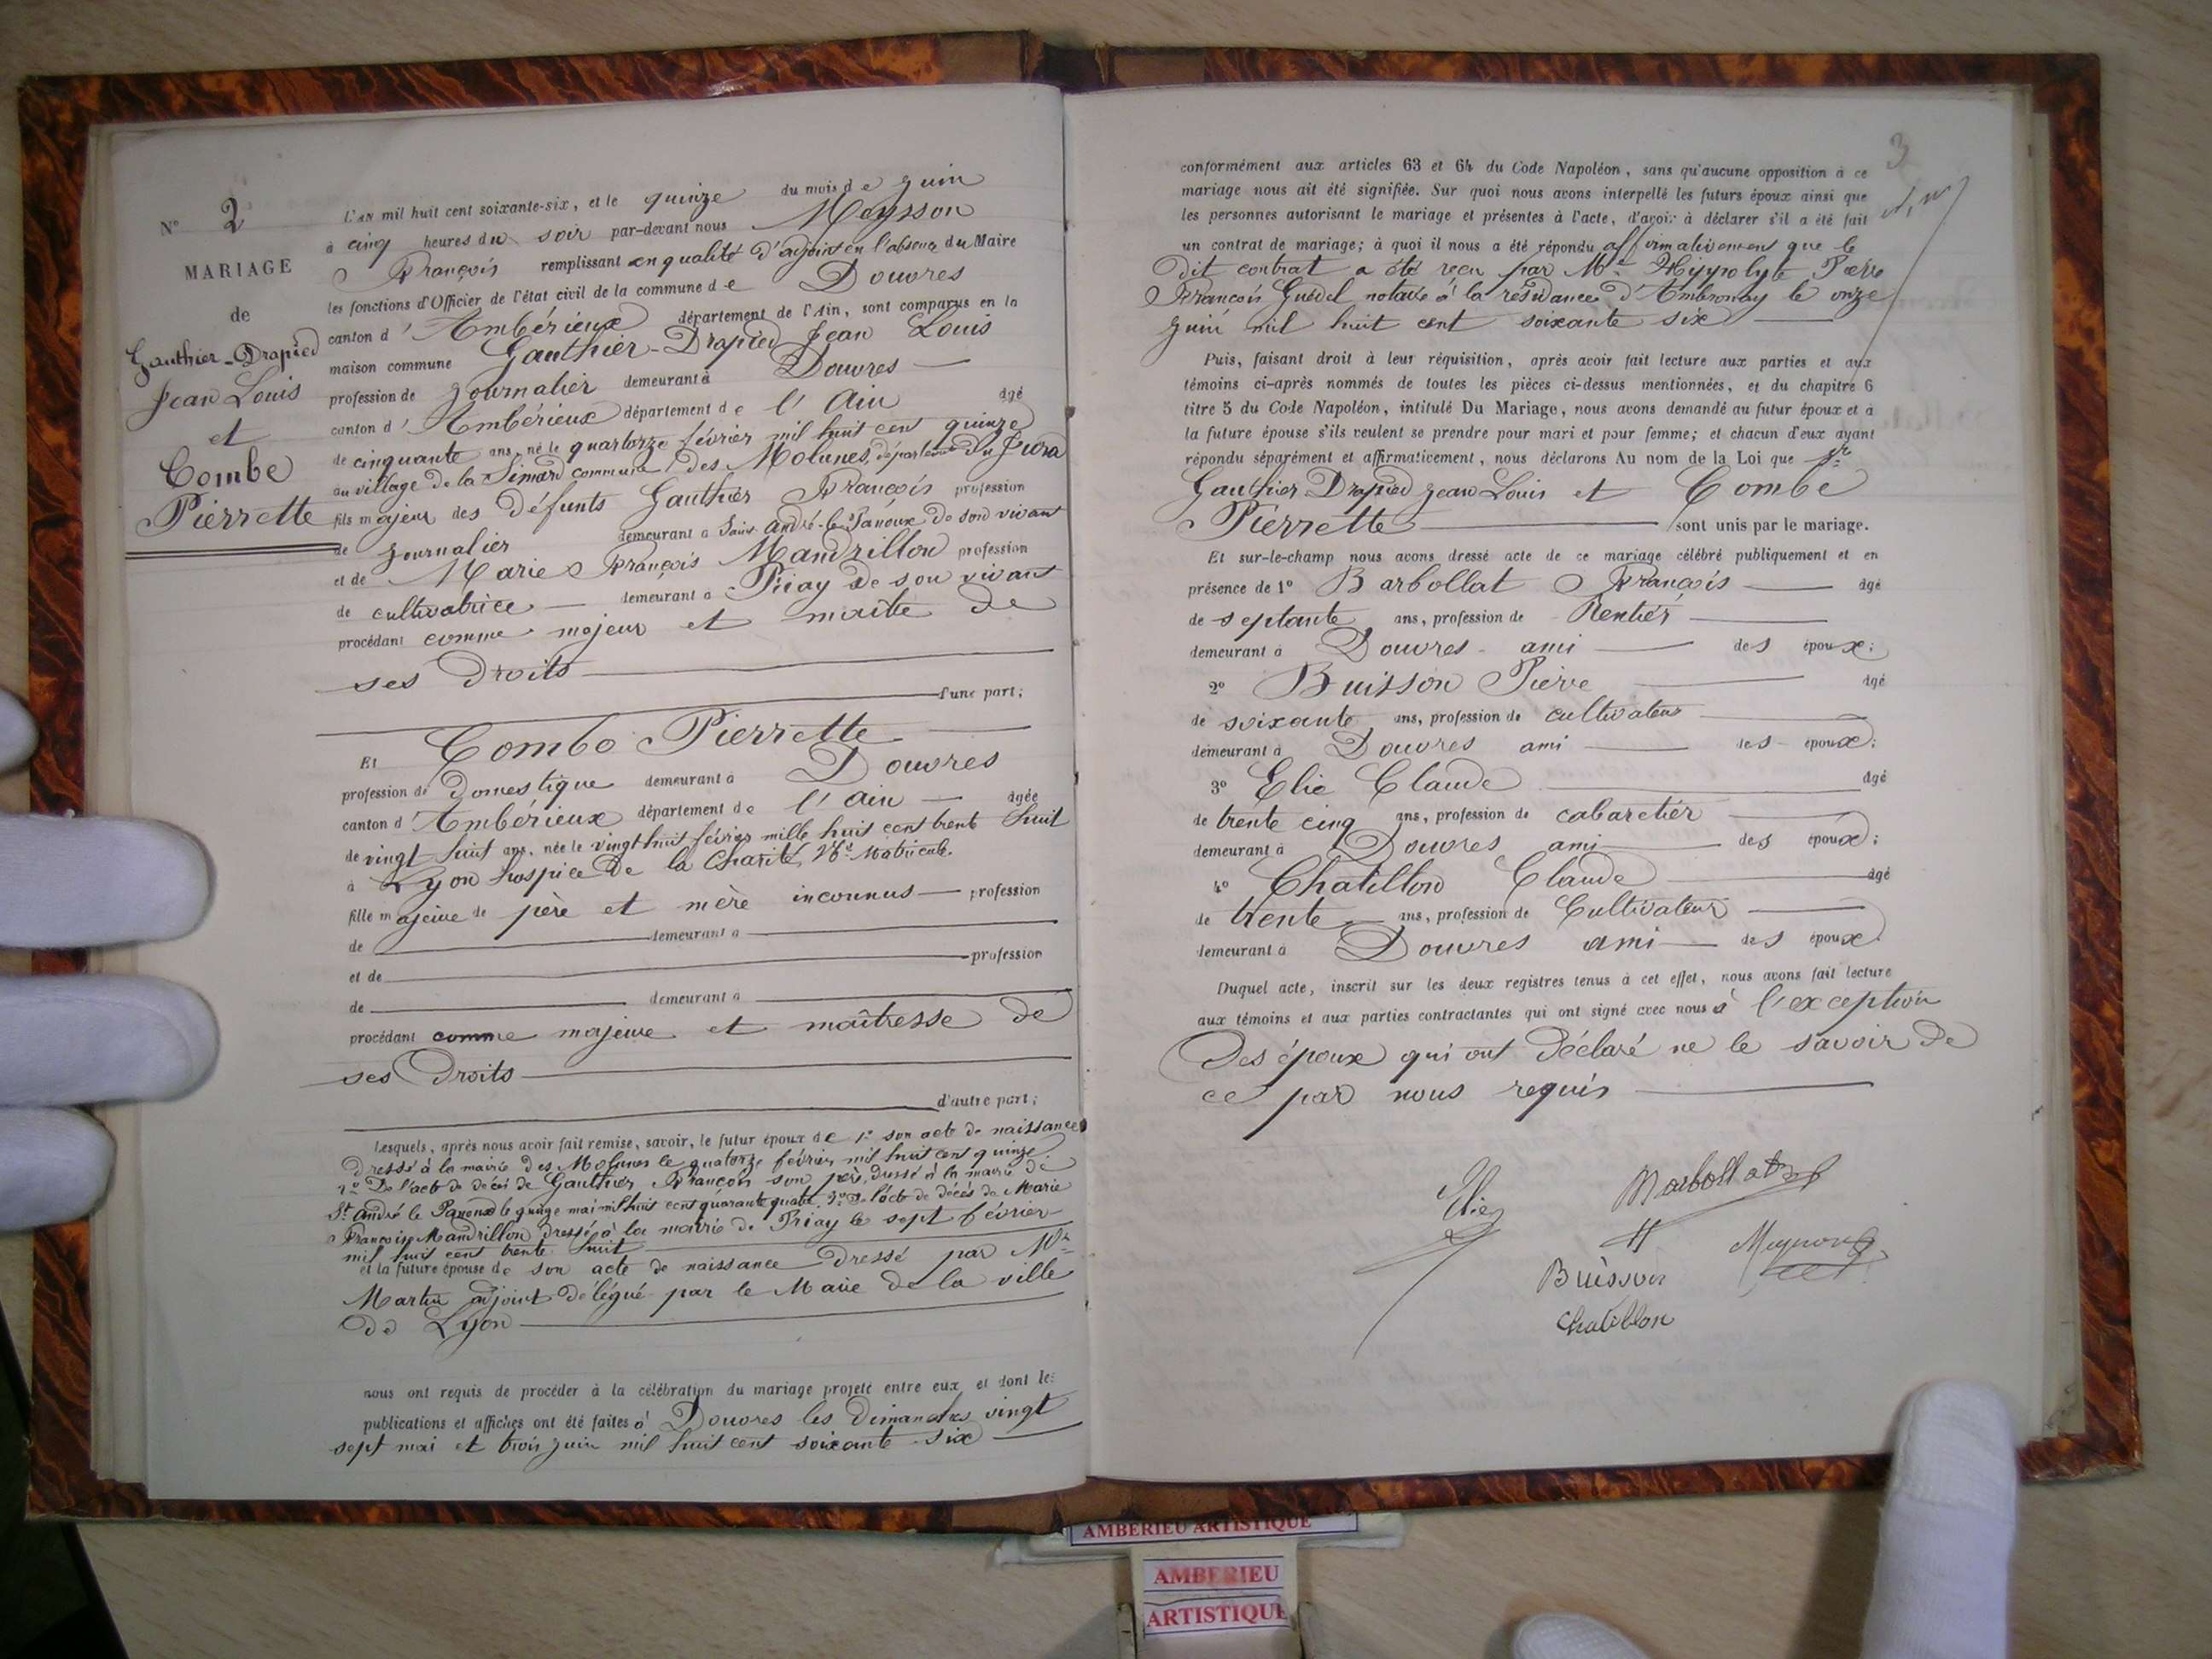 N° 2
MARIAGE
de
Gauthier-Drapied
Jean Louis
et
Combe
Pierrette
L'AN mil huit cent soixante-six, et le quinze du mois de Juin
à cinq heures du soir par-devant nous Meysson
François remplissant en qualité d'adjoint en l'absence du Maire
les fonctions d'Officier de l'état civil de la commune de Douvres
canton d'Ambérieux département de l'Ain, sont comparus en la
maison commune Gauthier-Drapied Jean Louis
profession de journalier demeurant à Douvres
canton d'Ambérieux département de l'Ain âgé
de cinquante ans, né le quartorze février mil huit cent quinze
au village de la Simard commune des Molunes, département du Jura
fils majeur des défunts Gauthier François profession
de journalier demeurant à Saint André-le-Panoux de son vivant
et de Marie François Mandrillon profession
de cultivatrice demeurant à Priay de son vivant
procédant comme majeur et maître de
ses droits
d'une part;
Et Combe Pierrette
profession de domestique demeurant à Douvres
canton d'Ambérieux département de l'Ain âgée
de vingt huit ans, née le vingt huit février mille huit cent trente huit
à Lyon hospice de la Charité, Matricule.
fille majeure de père et mère inconnus profession
de demeurant à
et de profession
de demeurant à
procédant comme majeure et maîtresse de
ses droits
d'autre part;
Lesquels, après nous avoir fait remise, savoir, le futur époux de 1° son acte de naissance
dressé à la mairie des Molunes le quatorze février mil huit cent quinze
2° De l'acte de décès de Gauthier François son père, dressé à la mairie de
St André le Panoux le quinze mai mil huit cent quarante quatre 3° de l'acte de décès de Marie
François Mandrillon dressé à la mairie de Priay le sept février
mil huit cent trente huit
et la future épouse de son acte de naissance dressé par Mr
Martin adjoint délégué par le Maire de la ville
de Lyon
nous ont requis de procéder à la célébration du mariage projeté entre eux et dont les
publications et affiches ont été faites à Douvres les dimanches vingt
sept mai et trois juin mil huit cent soixante six
3
conformément aux articles 63 et 64 du Code Napoléon, sans qu'aucune opposition à ce
mariage nous ait été signifiée. Sur quoi nous avons interpellé les futurs époux ainsi que
les personnes autorisant le mariage et présentes à l'acte, d'avoir à déclarer s'il a été fait
un contrat de mariage; à quoi il nous a été répondu affirmativement que le
dit contrat a été reçu par Me Hippolyte Pierre
François Guédel notaire à la résidance d'Ambronay le onze
juin mil huit cent soixante six
Puis, faisant droit à leur réquisition, après avoir fait lecture aux parties et aux
témoins ci-après nommés de toutes les pièces ci-dessus mentionnées, et du chapitre 6
titre 5 du Code Napoléon, intitulé Du Mariage, nous avons demandé au futur époux et à
la future épouse s'ils veulent se prendre pour mari et pour femme; et chacun d'eux ayant
répondu séparément et affirmativement, nous déclarons Au nom de la Loi que Sr
Gauthier Drapied Jean Louis et Combe
Pierrette sont unis par le mariage.
Et sur-le-champ nous avons dressé acte de ce mariage célébré publiquement et en
présence de 1° Barbollat François âgé
de septante ans, profession de Rentier
demeurant à Douvres ami des époux;
2° Buisson Pierre âgé
de soixante ans, profession de cultivateur
demeurant à Douvres ami des époux;
3° Elie Claude âgé
de trente cinq ans, profession de cabaretier
demeurant à Douvres ami des époux;
4° Chatillon Claude âgé
de trente ans, profession de Cultivateur
demeurant à Douvres ami des époux.
Duquel acte, inscrit sur les deux registres tenus à cet effet, nous avons fait lecture
aux témoins et aux parties contractantes qui ont signé avec nous à l'exception
des époux qui ont déclaré ne le savoir de
ce par nous requis
Elie
Barbollat
Buisson
Meysson
Chatillon
AMBERIEU ARTISTIQUE
AMBERIEU
ARTISTIQUE